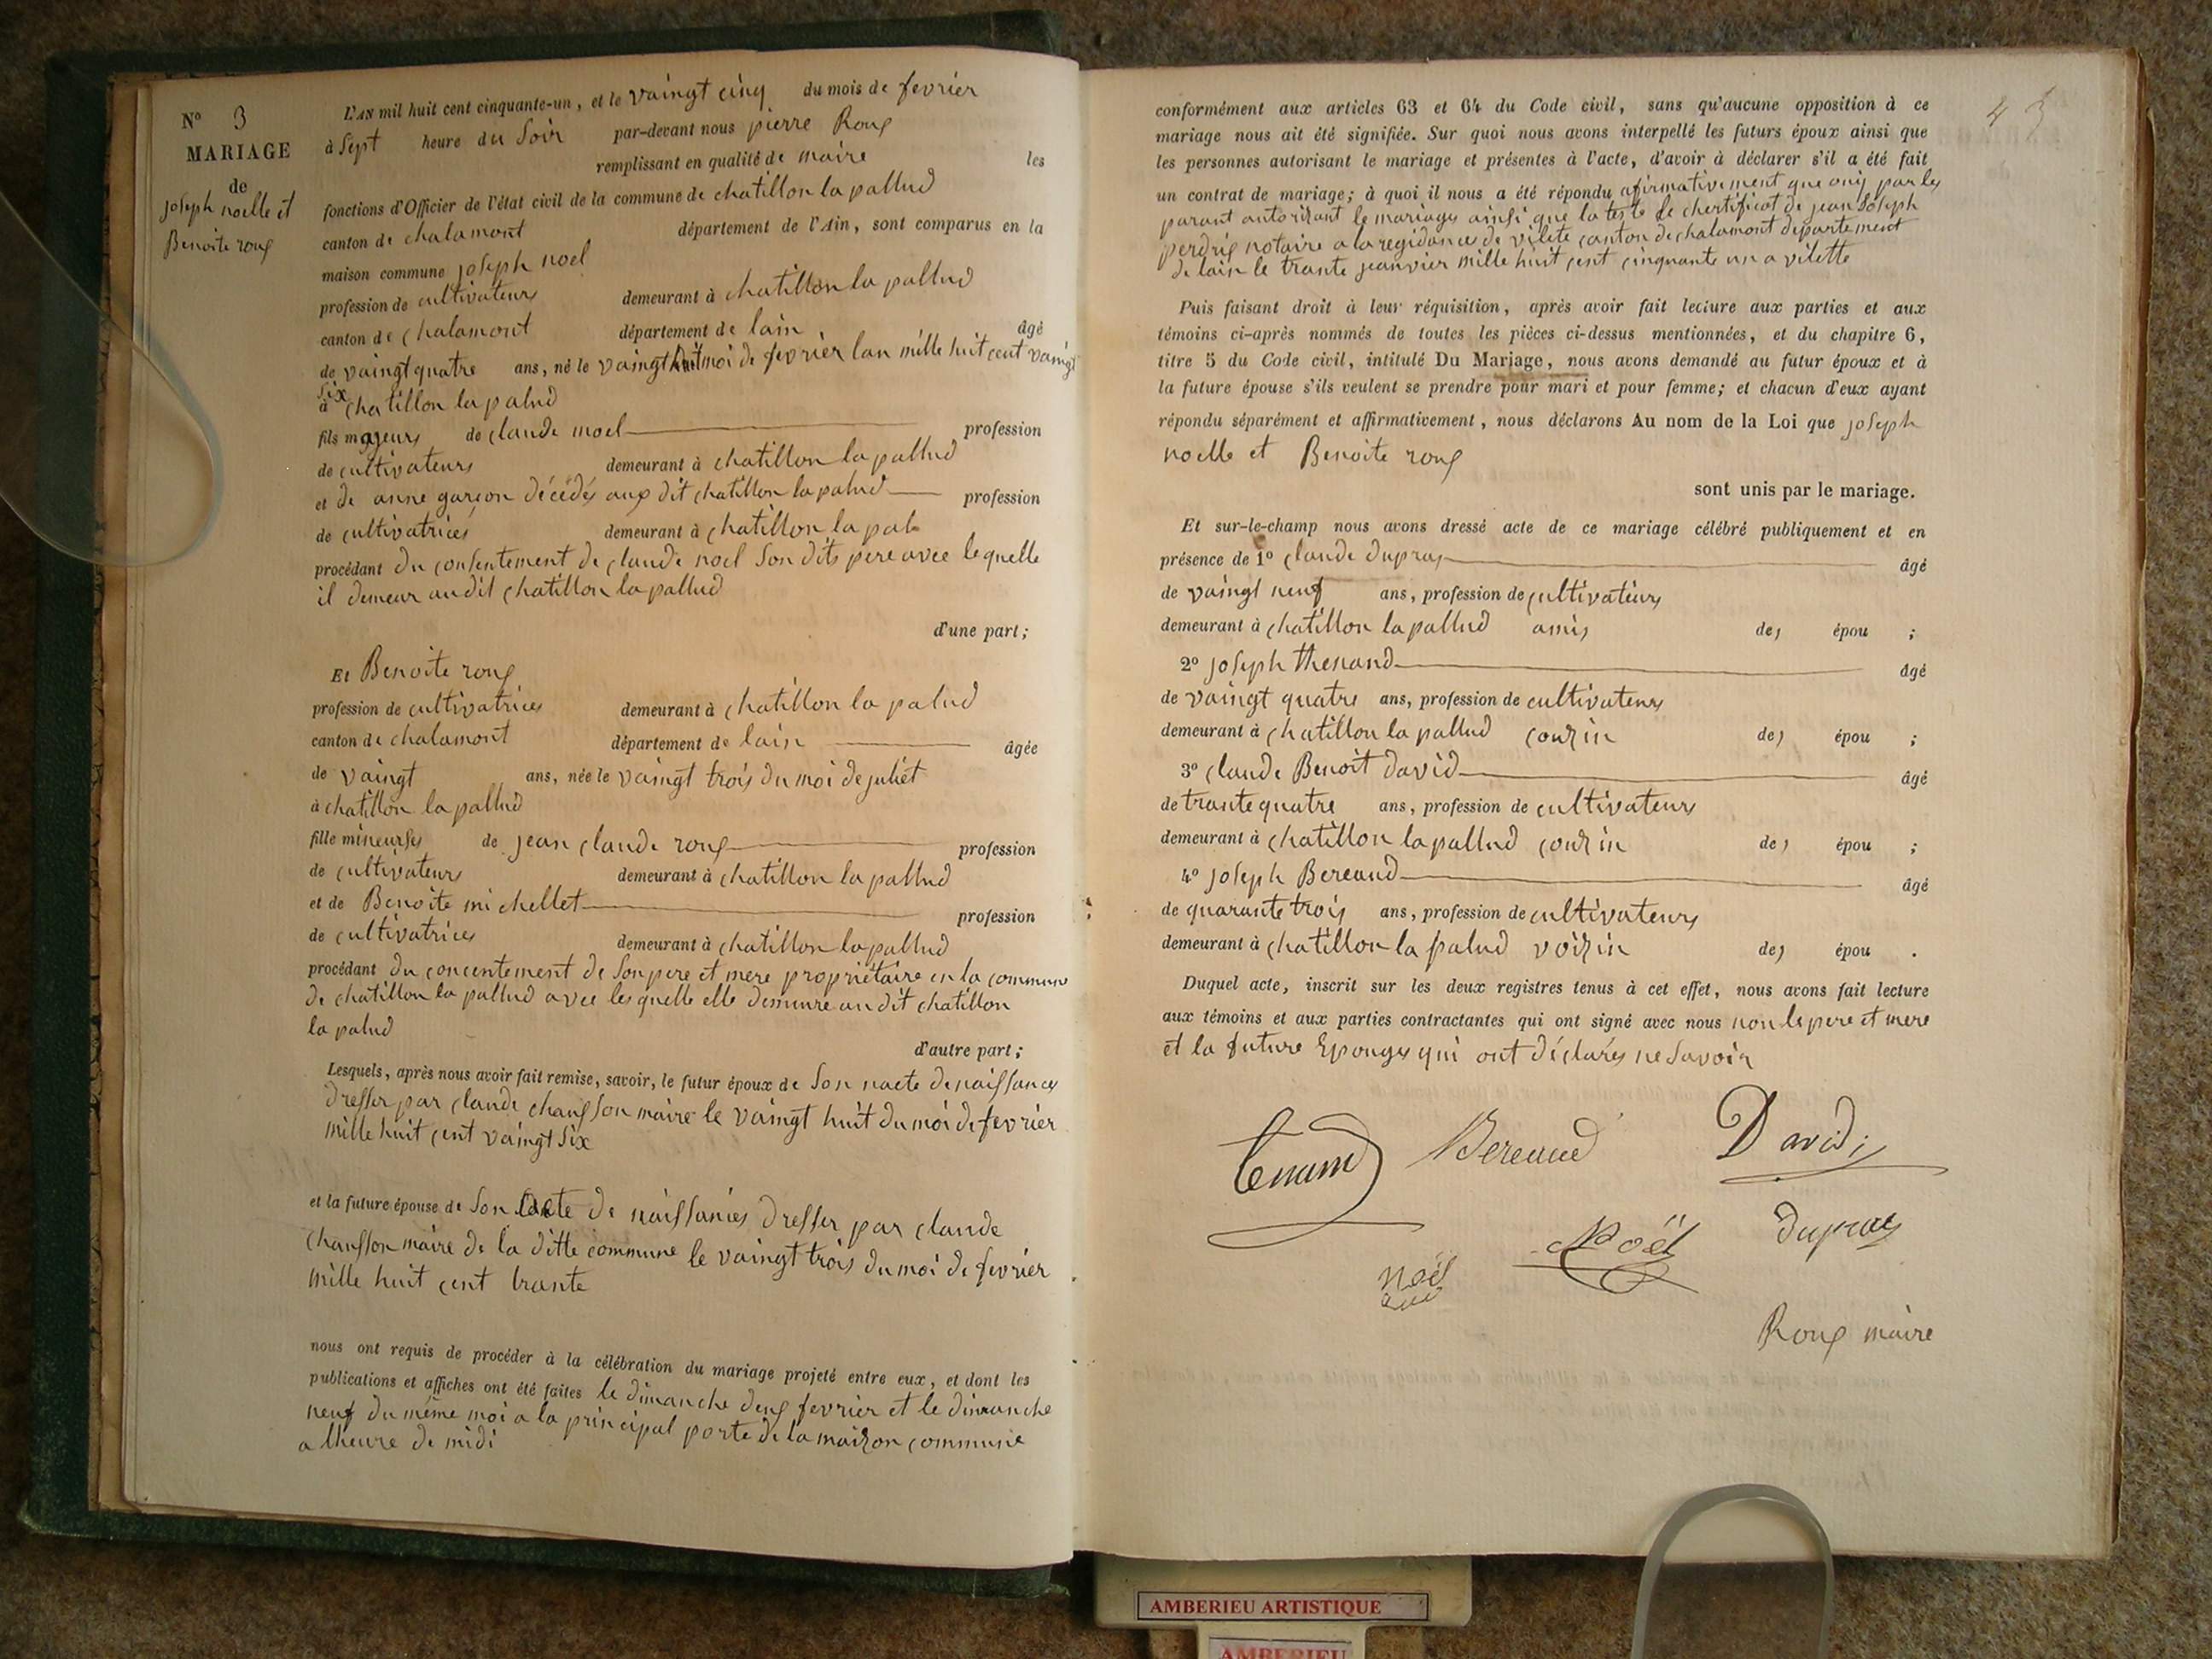 N° 3
MARIAGE
de
joseph noelle et
Benoite roux
L'AN mil huit cent cinquante-un, et le vaingt cinq du mois de fevrier
à sept heure du soir par-devant nous pierre Roux
remplissant en qualité de maire les
fonctions d'Officier de l'état civil de la commune de chatillon la pallud
canton de chalamont département de l'Ain, sont comparus en la
maison commune joseph noel
profession de cultivateurs demeurant à chatillon la pallud
canton de chalamont département de lain âgé
de vaingt quatre ans, né le vaingt huit moi de fevrier lan mille huit cent vaingt
six
à chatillon la palud
fils majeurs de claude noel profession
de cultivateurs demeurant à chatillon la pallud
et de anne garçon décédés aux dit chatillon la palud profession
de cultivatrices demeurant à chatillon la pal
procédant du consentement de claude noel son dits pere avec lequelle
il demeur audit chatillon la pallud
d'une part;
Et Benoite roux
profession de cultivatrices demeurant à chatillon la palud
canton de chalamont département de lain âgée
de vaingt ans, née le vaingt trois du moi de juliet
à chatillon la pallud
fille mineurses de jean claude roux profession
de cultivateurs demeurant à chatillon la pallud
et de Benoite michellet profession
de cultivatrices demeurant à chatillon la pallud
procédant du concentement de son pere et mere propriétaire en la commune
de chatillon la pallud avec lesquelle elle demeure au dit chatillon
la palud
d'autre part;
Lesquels, après nous avoir fait remise, savoir, le futur époux de son nacte de naissances
dresser par claude chanson maire le vaingt huit du moi de fevrier
mille huit cent vaingt six
et la future épouse de son lacte de naissances dresser par claude
chanson maire de la ditte commune le vaingt trois du moi de fevrier
mille huit cent trante
nous ont requis de procéder à la célébration du mariage projeté entre eux, et dont les
publications et affiches ont été faites le dimanche deux fevrier et le dimanche
neuf du même moi a la principal porte de la maizon commune
a lheure de midi
conformément aux articles 63 et 64 du Code civil, sans qu'aucune opposition à ce
mariage nous ait été signifiée. Sur quoi nous avons interpellé les futurs époux ainsi que
les personnes autorisant le mariage et présentes à l'acte, d'avoir à déclarer s'il a été fait
un contrat de mariage; à quoi il nous a été répondu afirmativement que ouy par les
parant autorizant le mariages ainsi que la teste le chertificat de jean joseph
perdrix notaire a la regidances de vilete canton de chalamont departement
de lain le trante jeanvier mille huit cent cinquante un a vilette
Puis faisant droit à leur réquisition, après avoir fait lecture aux parties et aux
témoins ci-après nommés de toutes les pièces ci-dessus mentionnées, et du chapitre 6,
titre 5 du Code civil, intitulé Du Mariage, nous avons demandé au futur époux et à
la future épouse s'ils veulent se prendre pour mari et pour femme; et chacun d'eux ayant
répondu séparément et affirmativement, nous déclarons Au nom de la Loi que joseph
noelle et Benoite roux
sont unis par le mariage.
Et sur-le-champ nous avons dressé acte de ce mariage célébré publiquement et en
présence de 1° claude dupras âgé
de vaingt neuf ans, profession de cultivateurs
demeurant à chatillon la pallud amis des épou ;
2° joseph thenand âgé
de vaingt quatre ans, profession de cultivateurs
demeurant à chatillon la pallud couzin des épou ;
3° claude Benoit david âgé
de trante quatre ans, profession de cultivateurs
demeurant à chatillon la pallud couzin des épou ;
4° joseph Bereaud âgé
de quarante trois ans, profession de cultivateurs
demeurant à chatillon la palud voizin des épou .
Duquel acte, inscrit sur les deux registres tenus à cet effet, nous avons fait lecture
aux témoins et aux parties contractantes qui ont signé avec nous non le pere et mere
et la future Epouges qui ont déclarés ne savoir
Tenand Bereaud David
Noël dupras
noël
Roux maire
AMBERIEU ARTISTIQUE
AMBERIEU